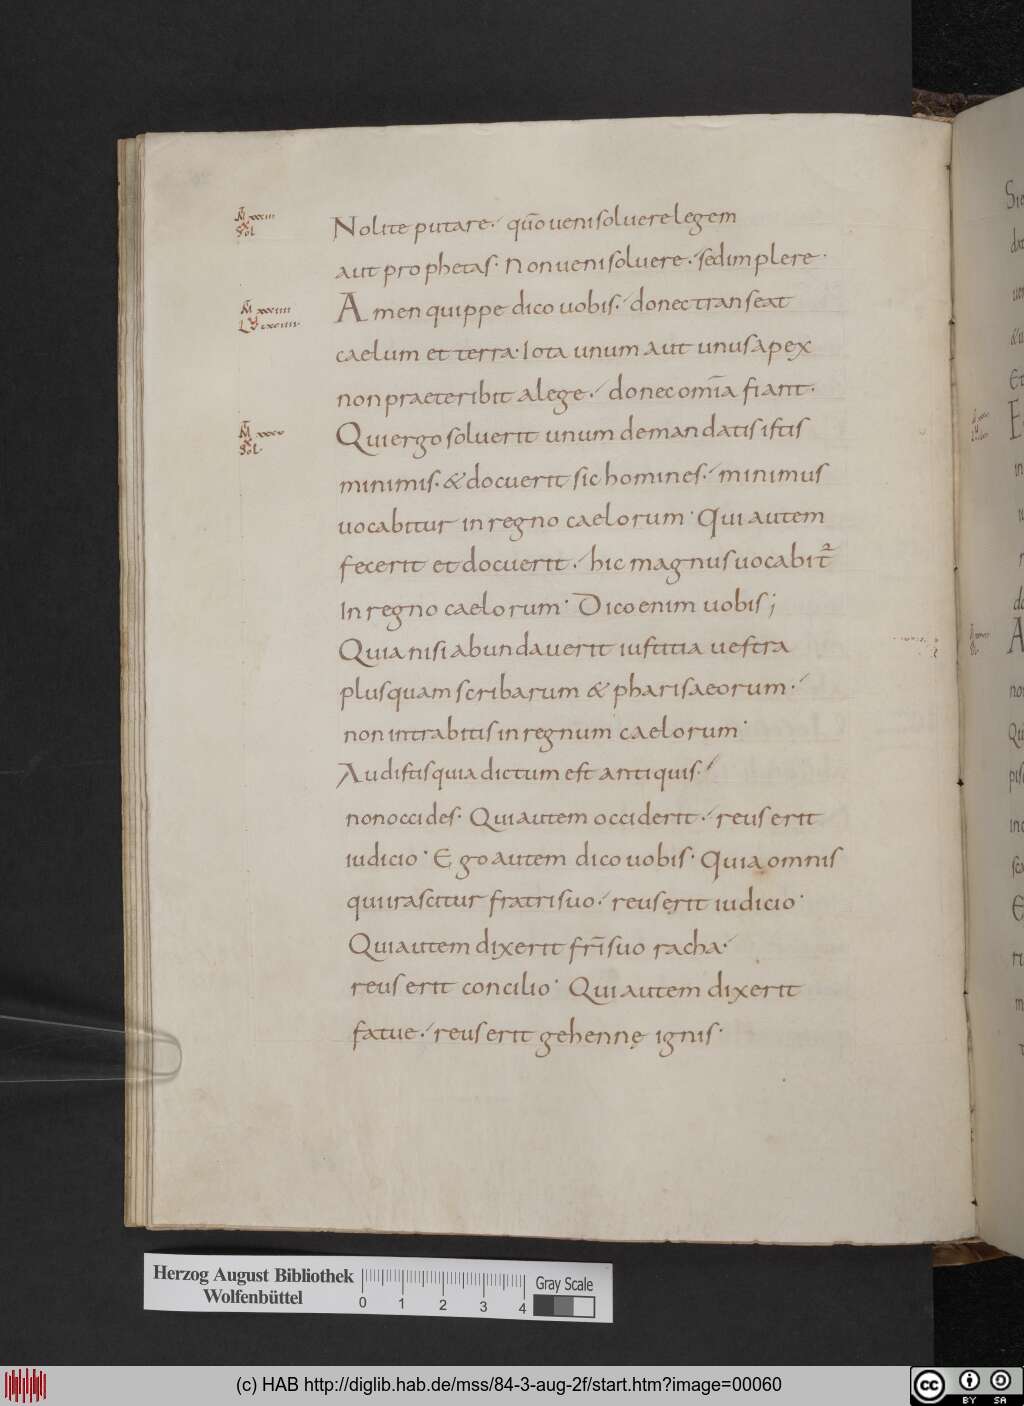 M̄ xxxiii
X
Sol
Nolite putare · qūo ueni soluere legem
aut prophetas · Non ueni soluere · sed implere ·
M̄ xxxiiii
V
Amen quippe dico uobis · donec transeat
caelum et terra · Iota unum aut unus apex
non praeteribit a lege · donec omīa fiant ·
M̄ xxxv
X
Sol ·
Qui ergo soluerit unum de mandatis istis
minimis · & docuerit sic homines · minimus
uocabitur in regno caelorum · Qui autem
fecerit et docuerit · hic magnus uocabit̃
In regno caelorum · Dico enim uobis ;
Quia nisi abundauerit iustitia uestra
plus quam scribarum & pharisaeorum ·
non intrabitis in regnum caelorum ·
Audistis quia dictum est antiquis ·
non occides · Qui autem occiderit · reus erit
iudicio · Ego autem dico uobis · Quia omnis
qui irascitur fratri suo · reus erit iudicio ·
Qui autem dixerit frī suo racha ·
reus erit concilio · Qui autem dixerit
fatue · reus erit gehennę ignis ·
Herzog August Bibliothek
Wolfenbüttel
0 1 2 3 4
Gray Scale
(c) HAB http://diglib.hab.de/mss/84-3-aug-2f/start.htm?image=00060
cc BY SA